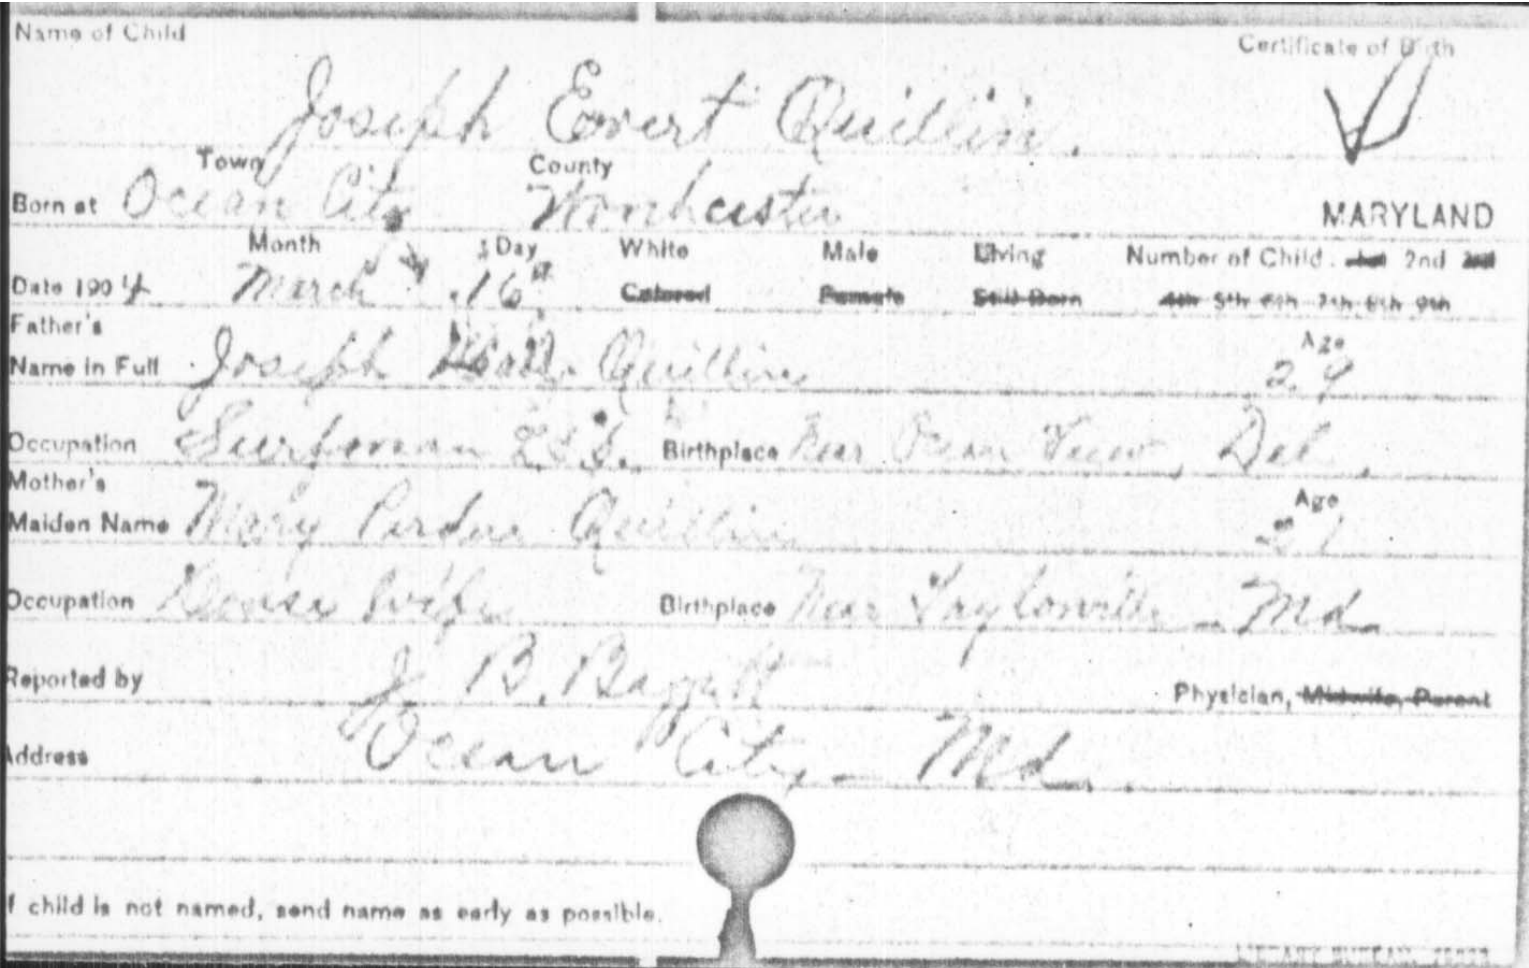 Name of Child
Certificate of Birth
Joseph Evert Quillin.
Town County
Born at Ocean City Worchester MARYLAND
Month Day White Male Living Number of Child. 1st 2nd 3rd
Date 1904 March 16th Colored Female Still Born 4th 5th 6th 7th 8th 9th
Father's Age
Name in Full Joseph Quillin 29
Occupation Surfman L.S.S. Birthplace Near Ocean View, Del.
Mother's Age
Maiden Name Mary Purdue Quillin
Occupation House Wife Birthplace Near Taylorville Md.
Reported by J. B. Physician, Midwife, Parent
Address Ocean City Md.
f child is not named, send name as early as possible.
LIBRARY BUREAU